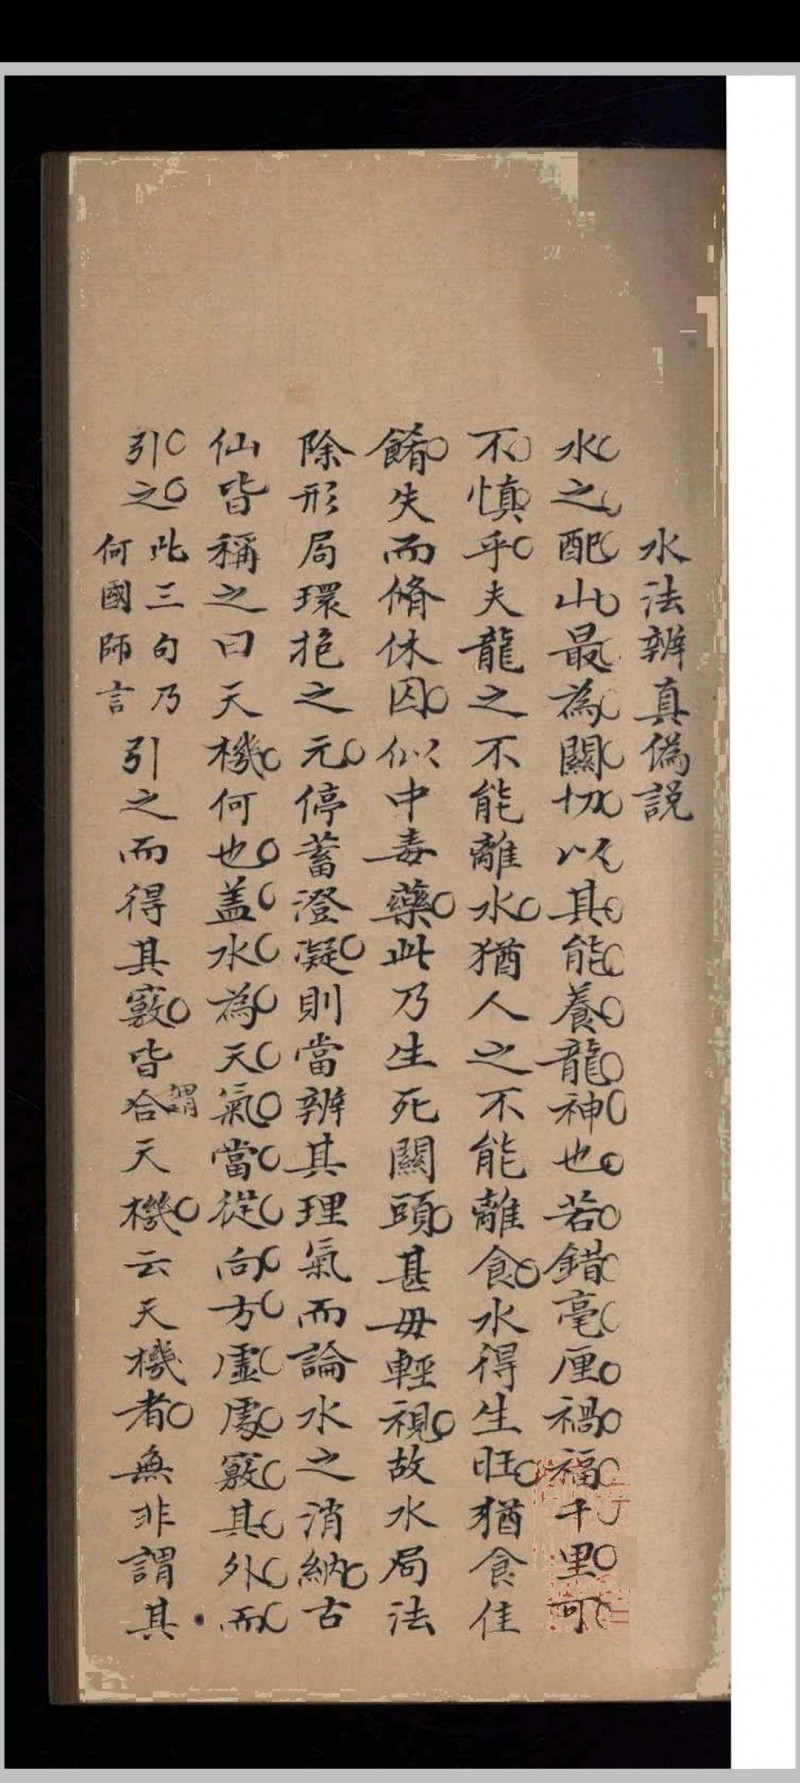 水法辨真偽説
水之配山最為關切以其能養龍神也若錯毫厘禍福千里可
不慎乎夫龍之不能離水猶人之不能離食水得生旺猶食佳
餚失而脩休囚似中毒藥此乃生死關頭甚毋輕視故水局法
除形局環抱之元停蓄澄凝則當辨其理氣而論水之消納古
仙皆稱之曰天機何也盖水為天氣當從向方虛處竅其外而
引之此三句乃何國師言引之而得其竅皆合謂天機云天機者無非謂其